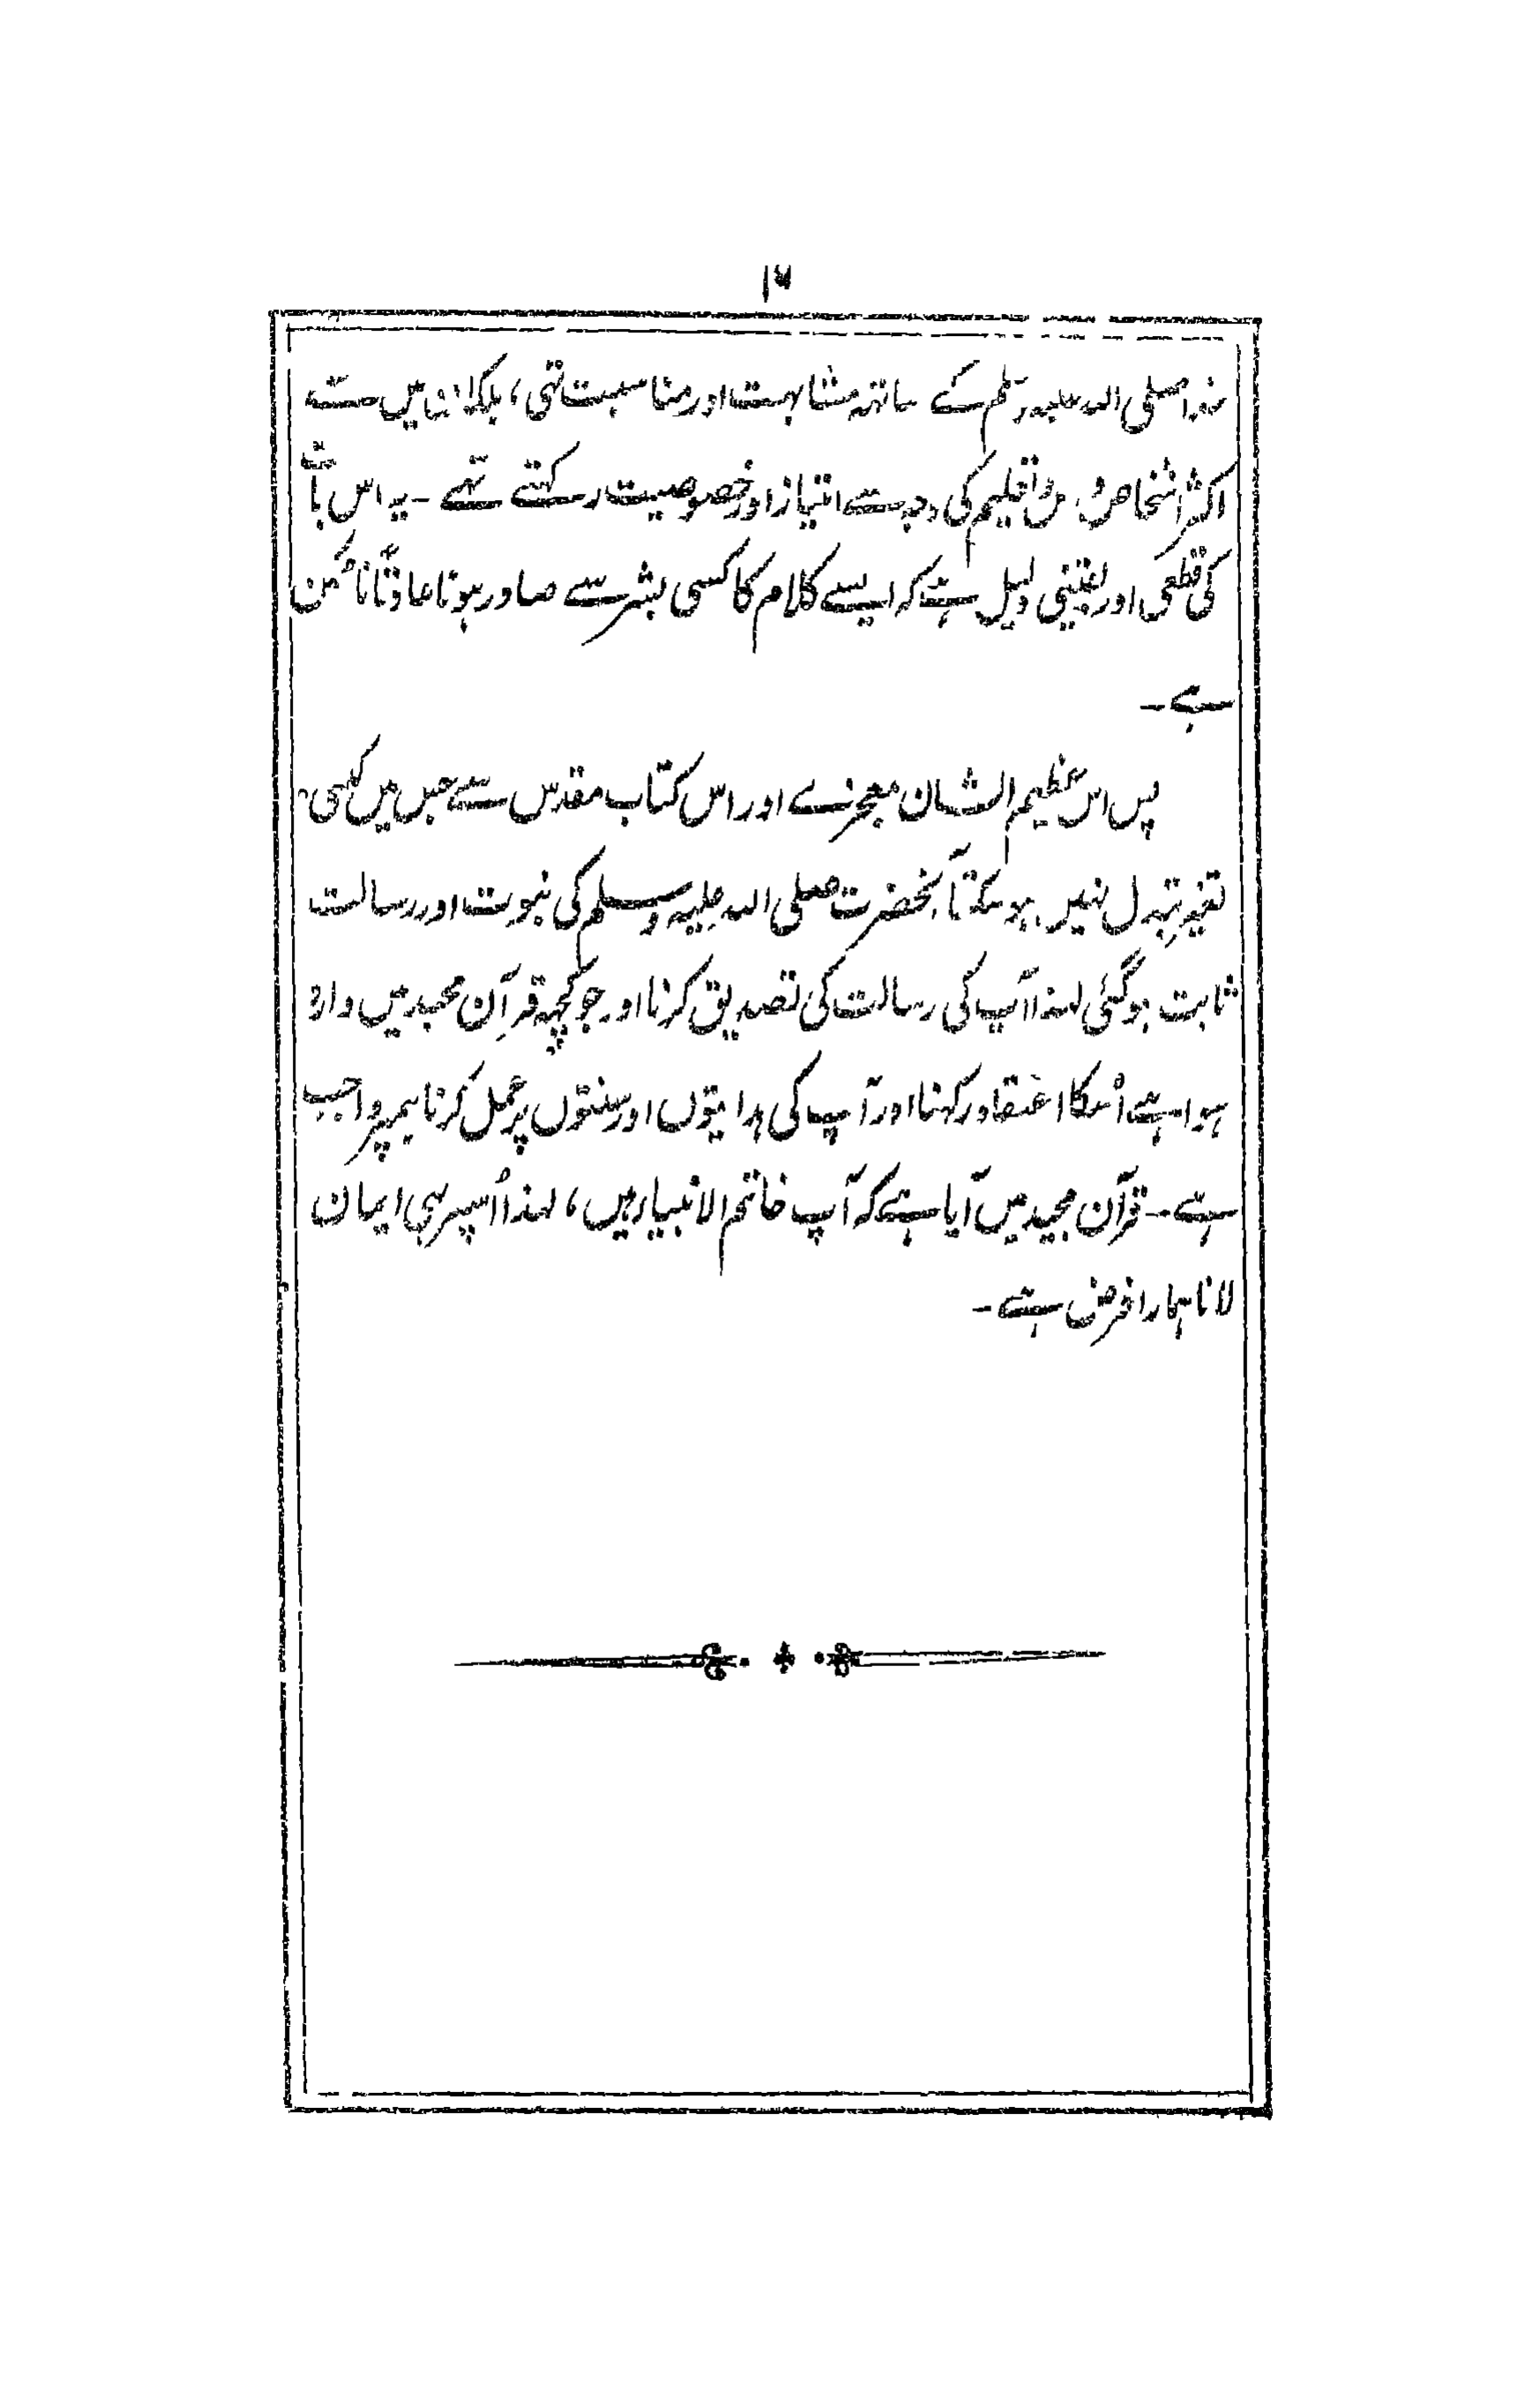 ۱۶
خدا صلی اللہ علیہ وسلم کے ساتھہ مشابہت اور مناسبت تھی، بلکہ ان میں سے
اکثر اشخاص درس و تعلیم کی وجہ سے امتیاز اور خصوصیت رکھتے تھے - یہ اس بات
کی قطعی اور یقینی دلیل ہے کہ ایسے کلام کا کسی بشر سے صادر ہونا عادتًا ناممکن
ہے -
پس اس عظیم الشان معجزے اور اس کتاب مقدس سے جس میں کبھی
تغیر تبدل نہیں ہو سکتا آنحضرت صلی اللہ علیہ وسلم کی نبوت اور رسالت
ثابت ہو گئی لہذا آپ کی رسالت کی تصدیق کرنا اور جو کچہہ قرآن مجید میں وارد
ہوا ہے اُسکا اعتقاد رکہنا اور آپ کی ہدایتوں اور سنتوں پر عمل کرنا ہمپر واجب
ہے - قرآن مجید میں آیا ہے کہ آپ خاتم الانبیاء ہیں، لہذا اُسپر بہی ایمان
لانا ہمارا فرض ہے -